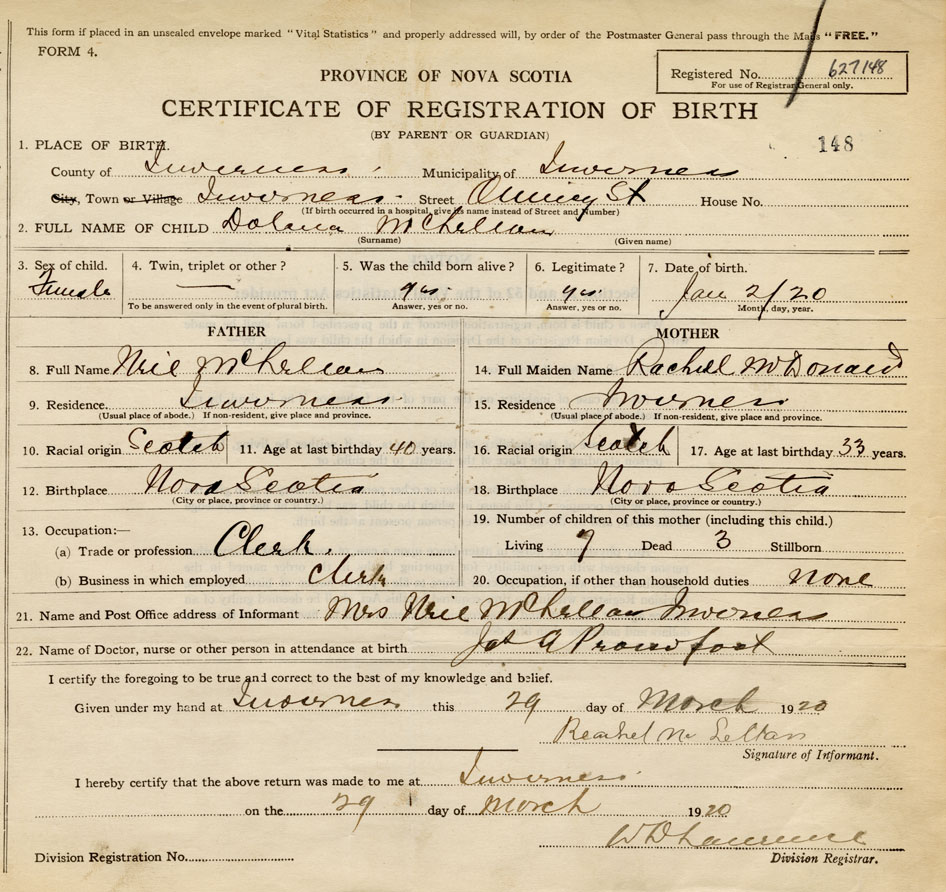 This form if placed in an unsealed envelope marked "Vital Statistics" and properly addressed will, by order of the Postmaster General pass through the Mails "FREE."
FORM 4.
Registered No. 627148
For use of Registrar General only.
PROVINCE OF NOVA SCOTIA
CERTIFICATE OF REGISTRATION OF BIRTH
(BY PARENT OR GUARDIAN)
148
1. PLACE OF BIRTH.
County of Inverness Municipality of Inverness
City, Town or Village Inverness Street St House No.
(If birth occurred in a hospital, give its name instead of Street and Number)
2. FULL NAME OF CHILD Dolena McLellan
(Surname) (Given name)
3. Sex of child. 4. Twin, triplet or other? 5. Was the child born alive? 6. Legitimate? 7. Date of birth.
Female — yes yes Jan 2/20
To be answered only in the event of plural birth. Answer, yes or no. Answer, yes or no. Month, day, year.
FATHER MOTHER
8. Full Name Neil McLellan 14. Full Maiden Name Rachell McDonald
9. Residence Inverness 15. Residence Inverness
(Usual place of abode.) If non-resident, give place and province. (Usual place of abode.) If non-resident, give place and province.
10. Racial origin Scotch 11. Age at last birthday 40 years. 16. Racial origin Scotch 17. Age at last birthday 33 years.
12. Birthplace Nova Scotia 18. Birthplace Nova Scotia
(City or place, province or country.) (City or place, province or country.)
13. Occupation:— 19. Number of children of this mother (including this child.)
(a) Trade or profession Clerk. Living 7 Dead 3 Stillborn
(b) Business in which employed Clerk 20. Occupation, if other than household duties none
21. Name and Post Office address of Informant Mrs Neil McLellan Inverness
22. Name of Doctor, nurse or other person in attendance at birth A Proudfoot
I certify the foregoing to be true and correct to the best of my knowledge and belief.
Given under my hand at Inverness this 29 day of March 1920
Reachel Mc Lellan
Signature of Informant.
I hereby certify that the above return was made to me at Inverness
on the 29 day of March 1920
W D Lawrence
Division Registration No. Division Registrar.